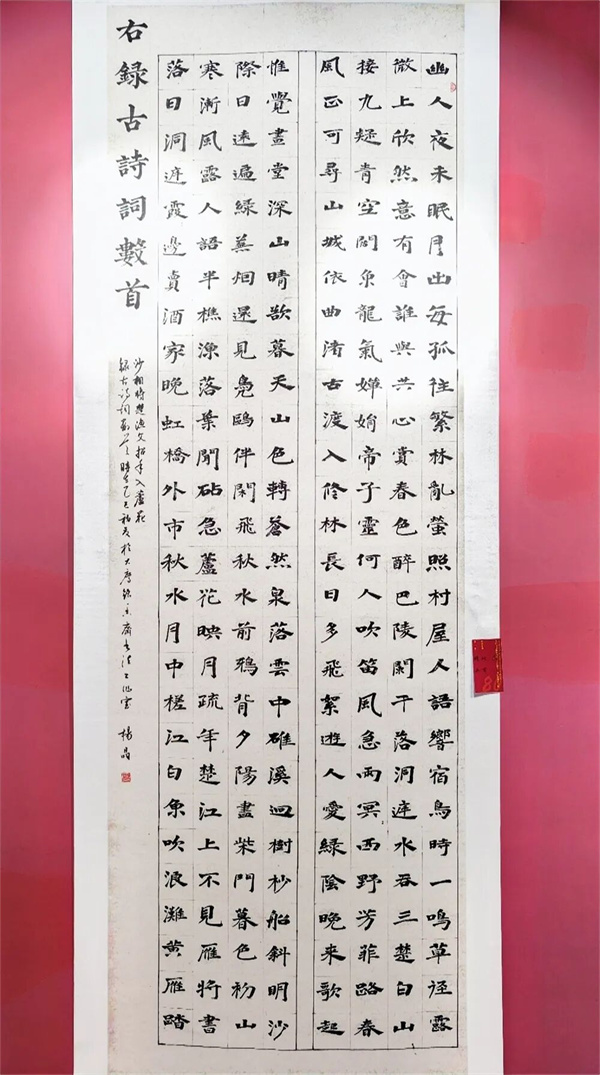 幽人夜未眠月出每孤往繁林亂螢照村屋人語響宿鳥時一鳴草徑露
微上欣然意有會誰與共心賞春色醉巴陵闌干落洞庭水吞三楚白山
接九疑青空闊魚龍氣嬋娟帝子靈何人吹笛風急雨冥西野芳菲路春
風正可尋山城依曲渚古渡入修林長日多飛絮遊人愛綠陰晚來歌起
惟覺畫堂深山晴欲暮天山色轉蒼然泉落雲中碓溪迴樹杪船斜明沙
際日遠遍綠蕪烟還見鳧鷗伴閑飛秋水前鴉背夕陽盡柴門暮色初山
寒漸風露人語半樵漁落葉聞砧急蘆花映月疏年楚江上不見雁將書
落日洞庭霞邊賣酒家晚虹橋外市秋水月中槎江白魚吹浪灘黃雁踏
右錄古詩詞數首
沙相將楚漁父招手入蘆花
錄古詩詞數首時在乙巳初夏於大唐 楊晶